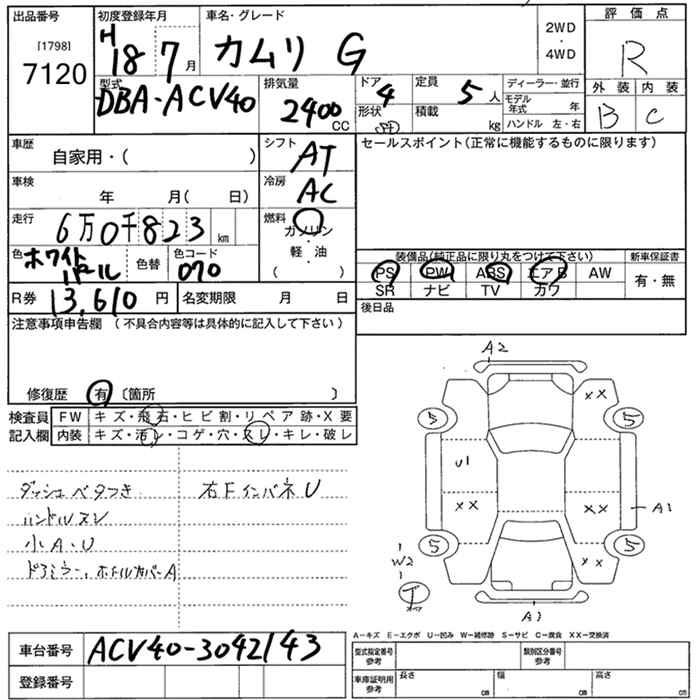 出品番号 初度登録年月 車名・グレード 2WD・4WD 評価点
[1798] 7120 H18 7月 カムリ G R
型式 排気量 ドア 定員 ディーラー・並行 外装 内装
DBA-ACV40 2400CC 4 5人 モデル年式 年 B C
形状 積載 kg ハンドル 左・右
車歴 シフト セールスポイント(正常に機能するものに限ります)
自家用・( ) AT
車検 冷房
年 月( 日) AC
走行 燃料
6万0千823km ガソリン・軽・油( )
色 色替 色コード 装備品(純正品に限り丸をつけて下さい) 新車保証書
ホワイトパール 070 PS PW ABS エアB AW 有・無
SR ナビ TV カワ
R券 13,610円 名変期限 月 日
後日品
注意事項申告欄 (不具合内容等は具体的に記入して下さい)
修復歴 有 〔箇所 〕
検査員記入欄 FW キズ・飛石・ヒビ割・リペア跡・X要
内装 キズ・汚レ・コゲ・穴・スレ・キレ・破レ
ダッシュベタつき 右Fインパネ U
ハンドルスレ
小A・U
ドアミラー、ホイルカバーA
A2
XX
5 5
U1
XX XX A1
5 5
W2 XX
下
A1
A−キズ E−エクボ U−凹み W−補修跡 S−サビ C−腐食 XX−交換済
車台番号 ACV40-3042143
型式指定番号参考 類別区分番号参考
登録番号
車庫証明用参考 長さ cm 幅 cm 高さ cm